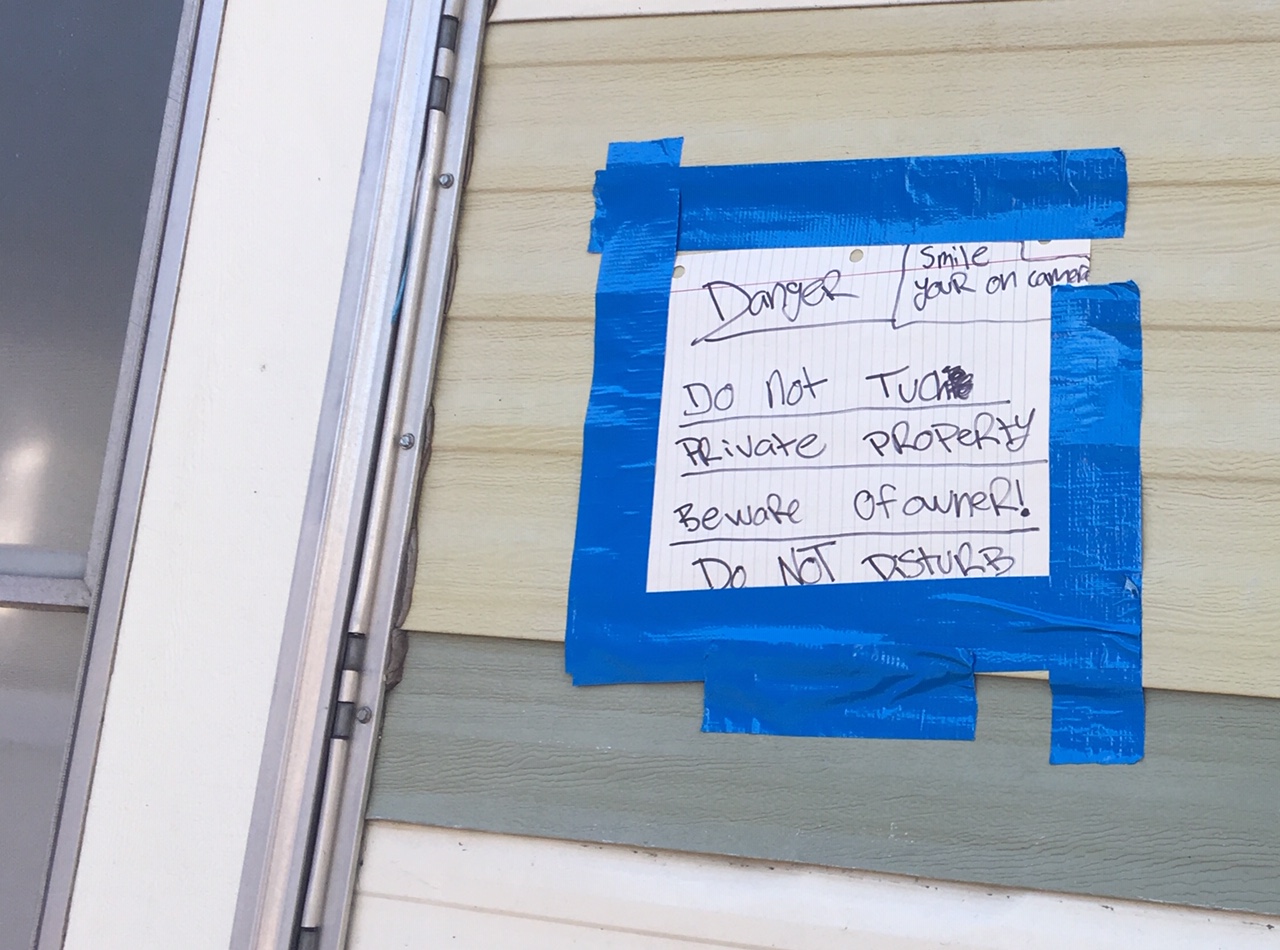 Danger
Smile
your on camera
Do Not Tuch
Private Property
Beware Of owner!
Do NOT DisturB